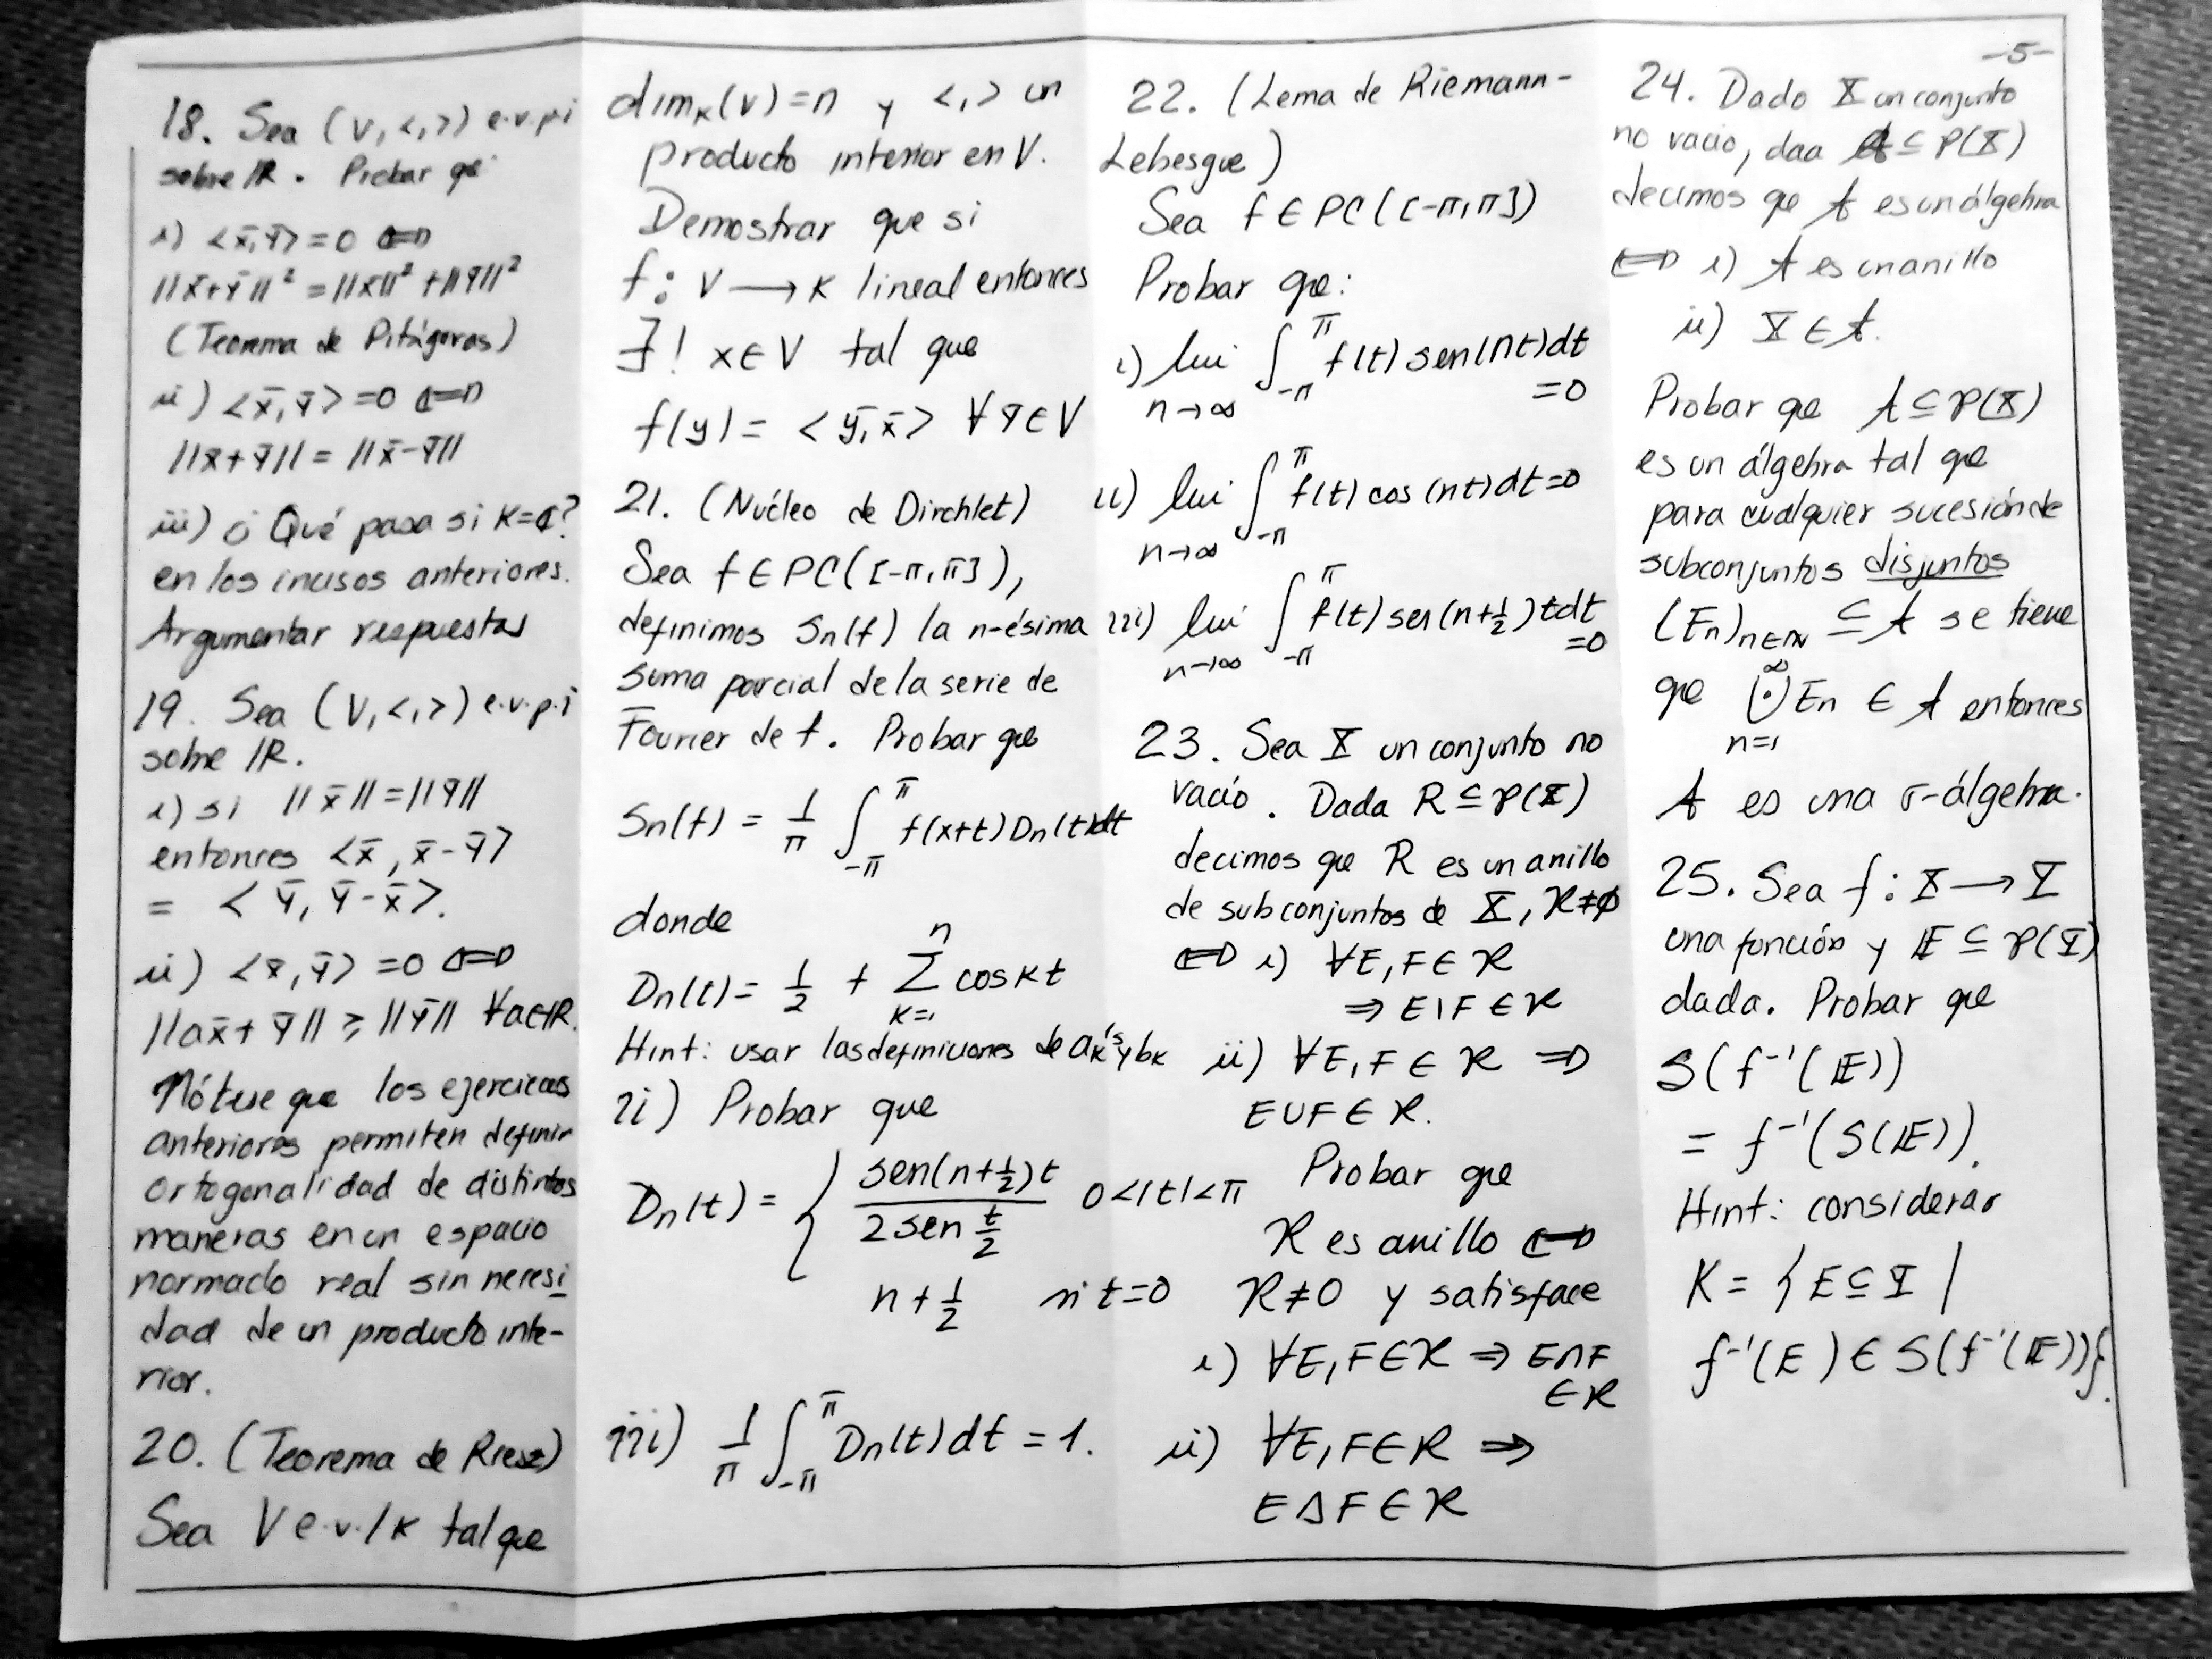 -5-
18. Sea (V, <,>) e.v.p.i
sobre IR. Probar qe
i) <x̄,ȳ> = 0 ⟺
||x̄+ȳ||² = ||x̄||² + ||ȳ||²
(Teorema de Pitágoras)
ii) <x̄,ȳ> = 0 ⟺
||x̄+ȳ|| = ||x̄-ȳ||
iii) ¿Qué pasa si K=ℂ?
en los incisos anteriores.
Argumentar respuestas
19. Sea (V,<,>) e.v.p.i
sobre IR.
i) si ||x̄|| = ||ȳ||
entonces <x̄, x̄-ȳ>
= <ȳ, ȳ-x̄>.
ii) <x̄,ȳ> = 0 ⟺
||ax̄ + ȳ|| ≥ ||ȳ|| ∀a∈IR.
Nótese que los ejercicios
anteriores permiten definir
ortogonalidad de distintas
maneras en un espacio
normado real sin necesi
dad de un producto inte-
rior.
20. (Teorema de Riesz)
Sea V e.v./K tal que
dim_K(V) = n y <,> un
producto interior en V.
Demostrar que si
f: V ⟶ K lineal entonces
∃! x∈V tal que
f(y) = <ȳ,x̄> ∀ȳ∈V
21. (Núcleo de Dirchlet)
Sea f ∈ PC([-π,π]),
definimos Sn(f) la n-ésima
suma parcial de la serie de
Fourier de f. Probar que
Sn(f) = 1/π ∫_{-π}^{π} f(x+t) Dn(t)dt
donde
Dn(t) = 1/2 + Σ_{k=1}^{n} cos kt
Hint: usar las definiciones de a_k's y b_k
ii) Probar que
Dn(t) = { sen(n+1/2)t / 2 sen t/2 0<|t|<π
n + 1/2 si t=0
iii) 1/π ∫_{-π}^{π} Dn(t)dt = 1.
22. (Lema de Riemann-
Lebesgue)
Sea f ∈ PC([-π,π])
Probar qe:
i) lim_{n→∞} ∫_{-π}^{π} f(t) sen(nt)dt
=0
ii) lim_{n→∞} ∫_{-π}^{π} f(t) cos(nt)dt=0
iii) lim_{n→∞} ∫_{-π}^{π} f(t) sen(n+1/2)tdt
=0
23. Sea X un conjunto no
vacío. Dada R ⊆ P(X)
decimos que R es un anillo
de subconjuntos de X, R≠∅
⟺ i) ∀E,F∈R
⇒ E\F∈R
ii) ∀E,F∈R ⇒
E∪F∈R.
Probar que
R es anillo ⟺
R≠0 y satisface
i) ∀E,F∈R ⇒ E∩F
∈R
ii) ∀E,F∈R ⇒
EΔF∈R
24. Dado X un conjunto
no vacío, daa A ⊆ P(X)
decimos qe A es un álgebra
⟺ i) A es un anillo
ii) X∈A.
Probar qe A ⊆ P(X)
es un álgebra tal que
para cualquier sucesión de
subconjuntos disjuntos
(En)_{n∈IN} ⊆ A se tiene
que ⨃_{n=1}^{∞} En ∈ A entonces
A es una σ-álgebra.
25. Sea f: X ⟶ Y
una función y 𝔼 ⊆ P(Y)
dada. Probar que
S(f⁻¹(𝔼))
= f⁻¹(S(𝔼)).
Hint: considerar
K = {E⊆Y |
f⁻¹(E) ∈ S(f⁻¹(𝔼))}.